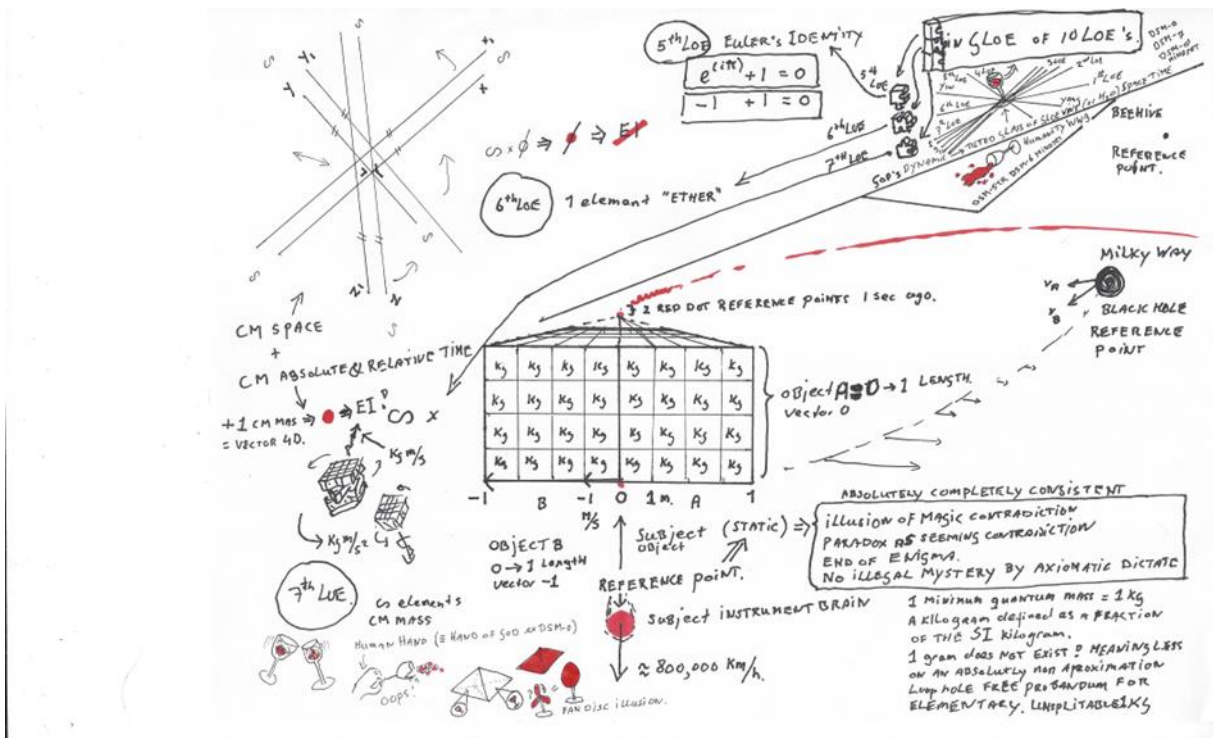 5th LOE EULER'S IDENTITY
e(iπ) + 1 = 0
-1 + 1 = 0
5th LOE
6th LOE
7th LOE
IN 5LOE OF 10 LOE'S.
DSM-0
DSM-7
2nd LOE
1st LOE
6th LOE
7th LOE
SPACE TIME
BEEHIVE
REFERENCE
POINT.
GOD'S DYNAMIC
HUMANITY WWG
S x ∅ ⇒ ∅ ⇒ EI
6th LOE 1 element "ETHER"
MILKY WAY
VA
VB
BLACK HOLE
REFERENCE
POINT
2 RED DOT REFERENCE POINTS 1 sec ago.
CM SPACE
+
CM ABSOLUTE & RELATIVE TIME
+1 CM MAS ⇒ ⇒ EI. S x
= VECTOR 4D.
Kg m/s
Kg m/s²
Kg Kg Kg Kg Kg Kg Kg Kg
Kg Kg Kg Kg Kg Kg Kg Kg
Kg Kg Kg Kg Kg Kg Kg Kg
Kg Kg Kg Kg Kg Kg Kg Kg
OBJECT A 0 → 1 LENGTH.
Vector 0
-1 B -1 0 1 m. A 1
M/S
OBJECT B
0 → 1 LENGTH
vector -1
SUBJECT (STATIC) ⇒
OBJECT
REFERENCE POINT.
SUBJECT INSTRUMENT BRAIN
≈ 800,000 Km/h.
ABSOLUTELY COMPLETELY CONSISTENT
ILLUSION OF MAGIC CONTRADICTION
PARADOX AS SEEMING CONTRADICTION
END OF ENIGMA.
NO ILLEGAL MYSTERY BY AXIOMATIC DICTATE
1 MINIMUM QUANTUM MASS = 1 Kg
A KILOGRAM DEFINED AS A FRACTION
OF THE SI KILOGRAM.
1 gram DOES NOT EXIST? MEANINGLESS
ON AN ABSOLUTLY NON APROXIMATION
LOOP HOLE FREE PROBANDUM FOR
ELEMENTARY. UNSPLITABLE 1KG
7th LOE.
elements
CM MASS
HUMAN HAND (= HAND OF GOD DSM-0)
OOPS!
FAN DISC ILLUSION.